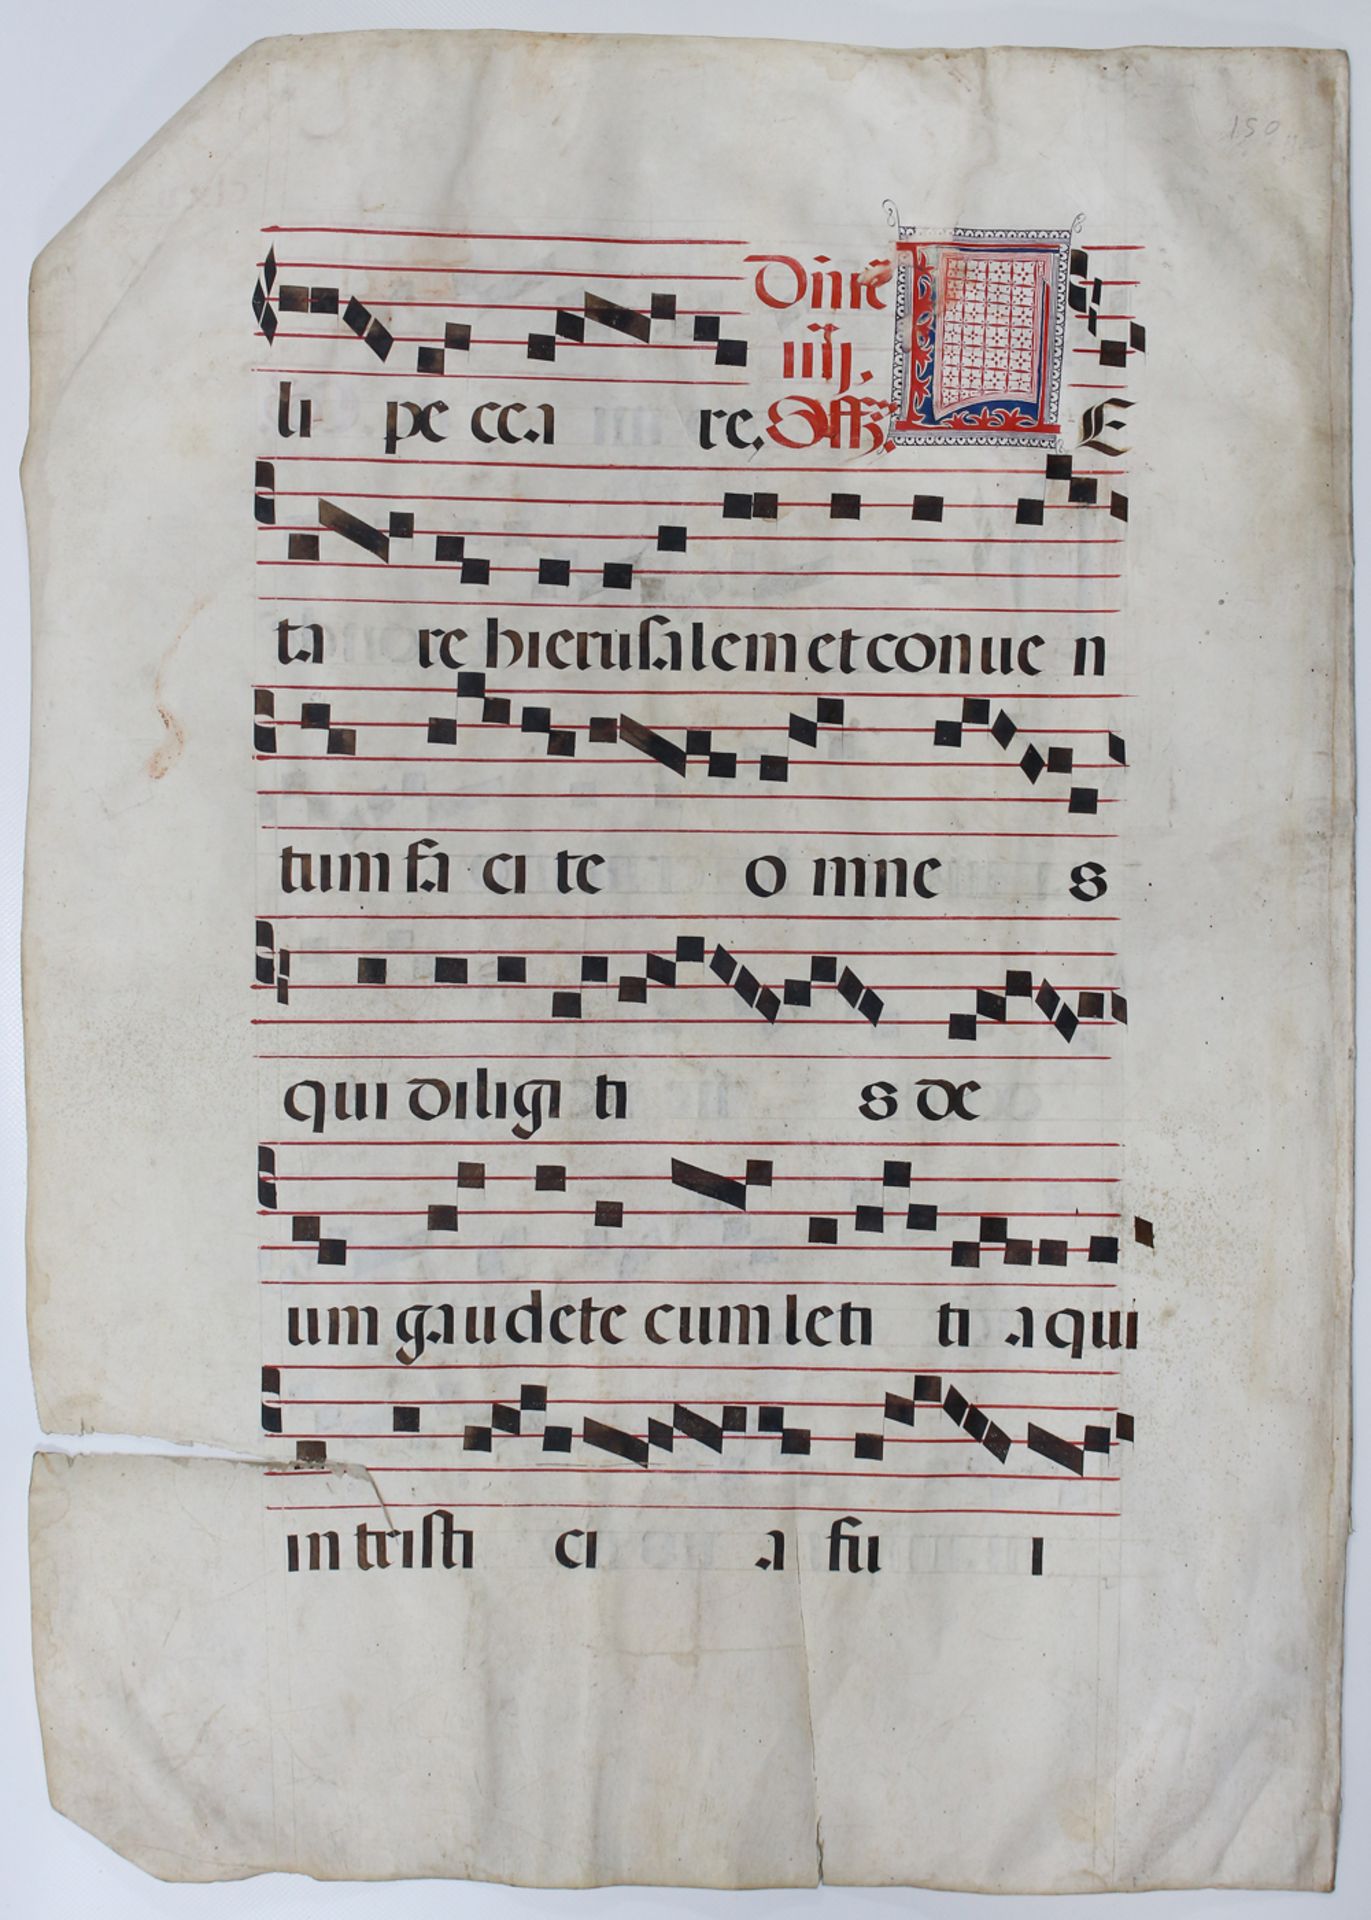 150
li pe cca re. Dn̄re
iiij.
Offz. L E
ta re hierusalem et conue n
tum fa ci te o mne s
qui diligi ti s de
um gaudete cum leti ti a qui
in tristi ci a fu i